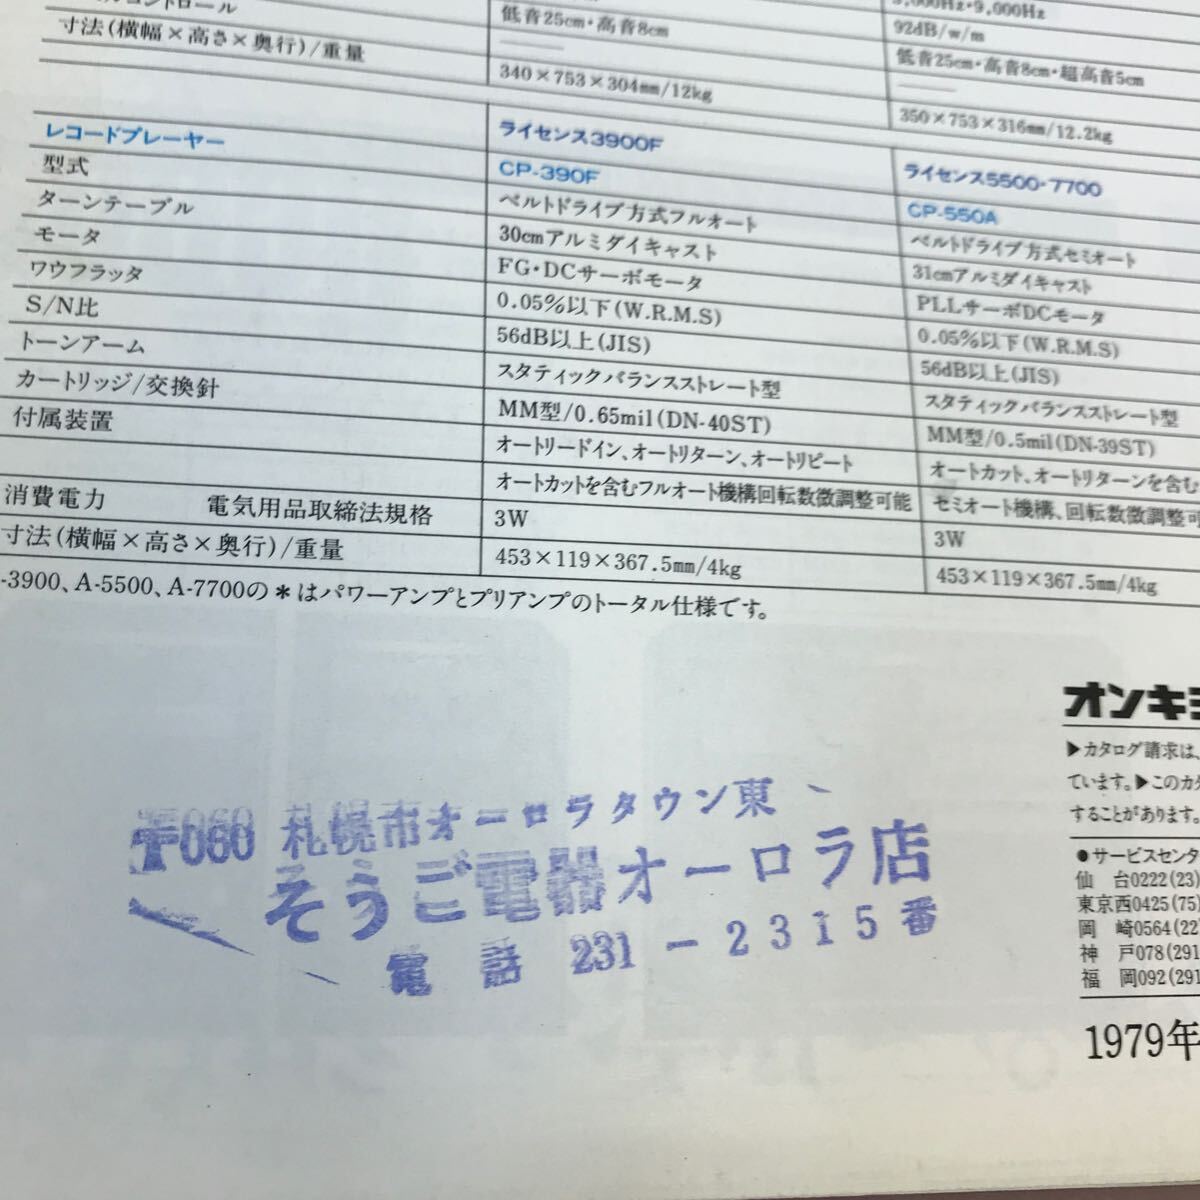 コントロール
寸法(横幅×高さ×奥行)/重量
低音25cm・高音8cm
340×753×304mm/12kg
000Hz・9,000Hz
92dB/w/m
低音25cm・高音8cm・超高音5cm
350×753×316mm/12.2kg
レコードプレーヤー ライセンス3900F ライセンス5500・7700
型式 CP-390F CP-550A
ターンテーブル ベルトドライブ方式フルオート ベルトドライブ方式セミオート
モータ 30cmアルミダイキャスト 31cmアルミダイキャスト
ワウフラッタ FG・DCサーボモータ PLLサーボDCモータ
S/N比 0.05%以下(W.R.M.S) 0.05%以下(W.R.M.S)
トーンアーム 56dB以上(JIS) 56dB以上(JIS)
カートリッジ/交換針 スタティックバランスストレート型 スタティックバランスストレート型
付属装置 MM型/0.65mil(DN-40ST) MM型/0.5mil(DN-39ST)
オートリードイン、オートリターン、オートリピート オートカット、オートリターンを含む
オートカットを含むフルオート機構回転数微調整可能 セミオート機構、回転数微調整可
消費電力 電気用品取締法規格 3W 3W
寸法(横幅×高さ×奥行)/重量 453×119×367.5mm/4kg 453×119×367.5mm/4kg
-3900、A-5500、A-7700の*はパワーアンプとプリアンプのトータル仕様です。
オンキヨ
▶カタログ請求は、
ています。▶このカタ
することがあります。
●サービスセンタ
仙 台0222(23)
東京西0425(75)
岡 崎0564(22
神 戸078(291
福 岡092(291
1979年
〒060 札幌市オーロラタウン東
そうご電器オーロラ店
電 話 231-2315番